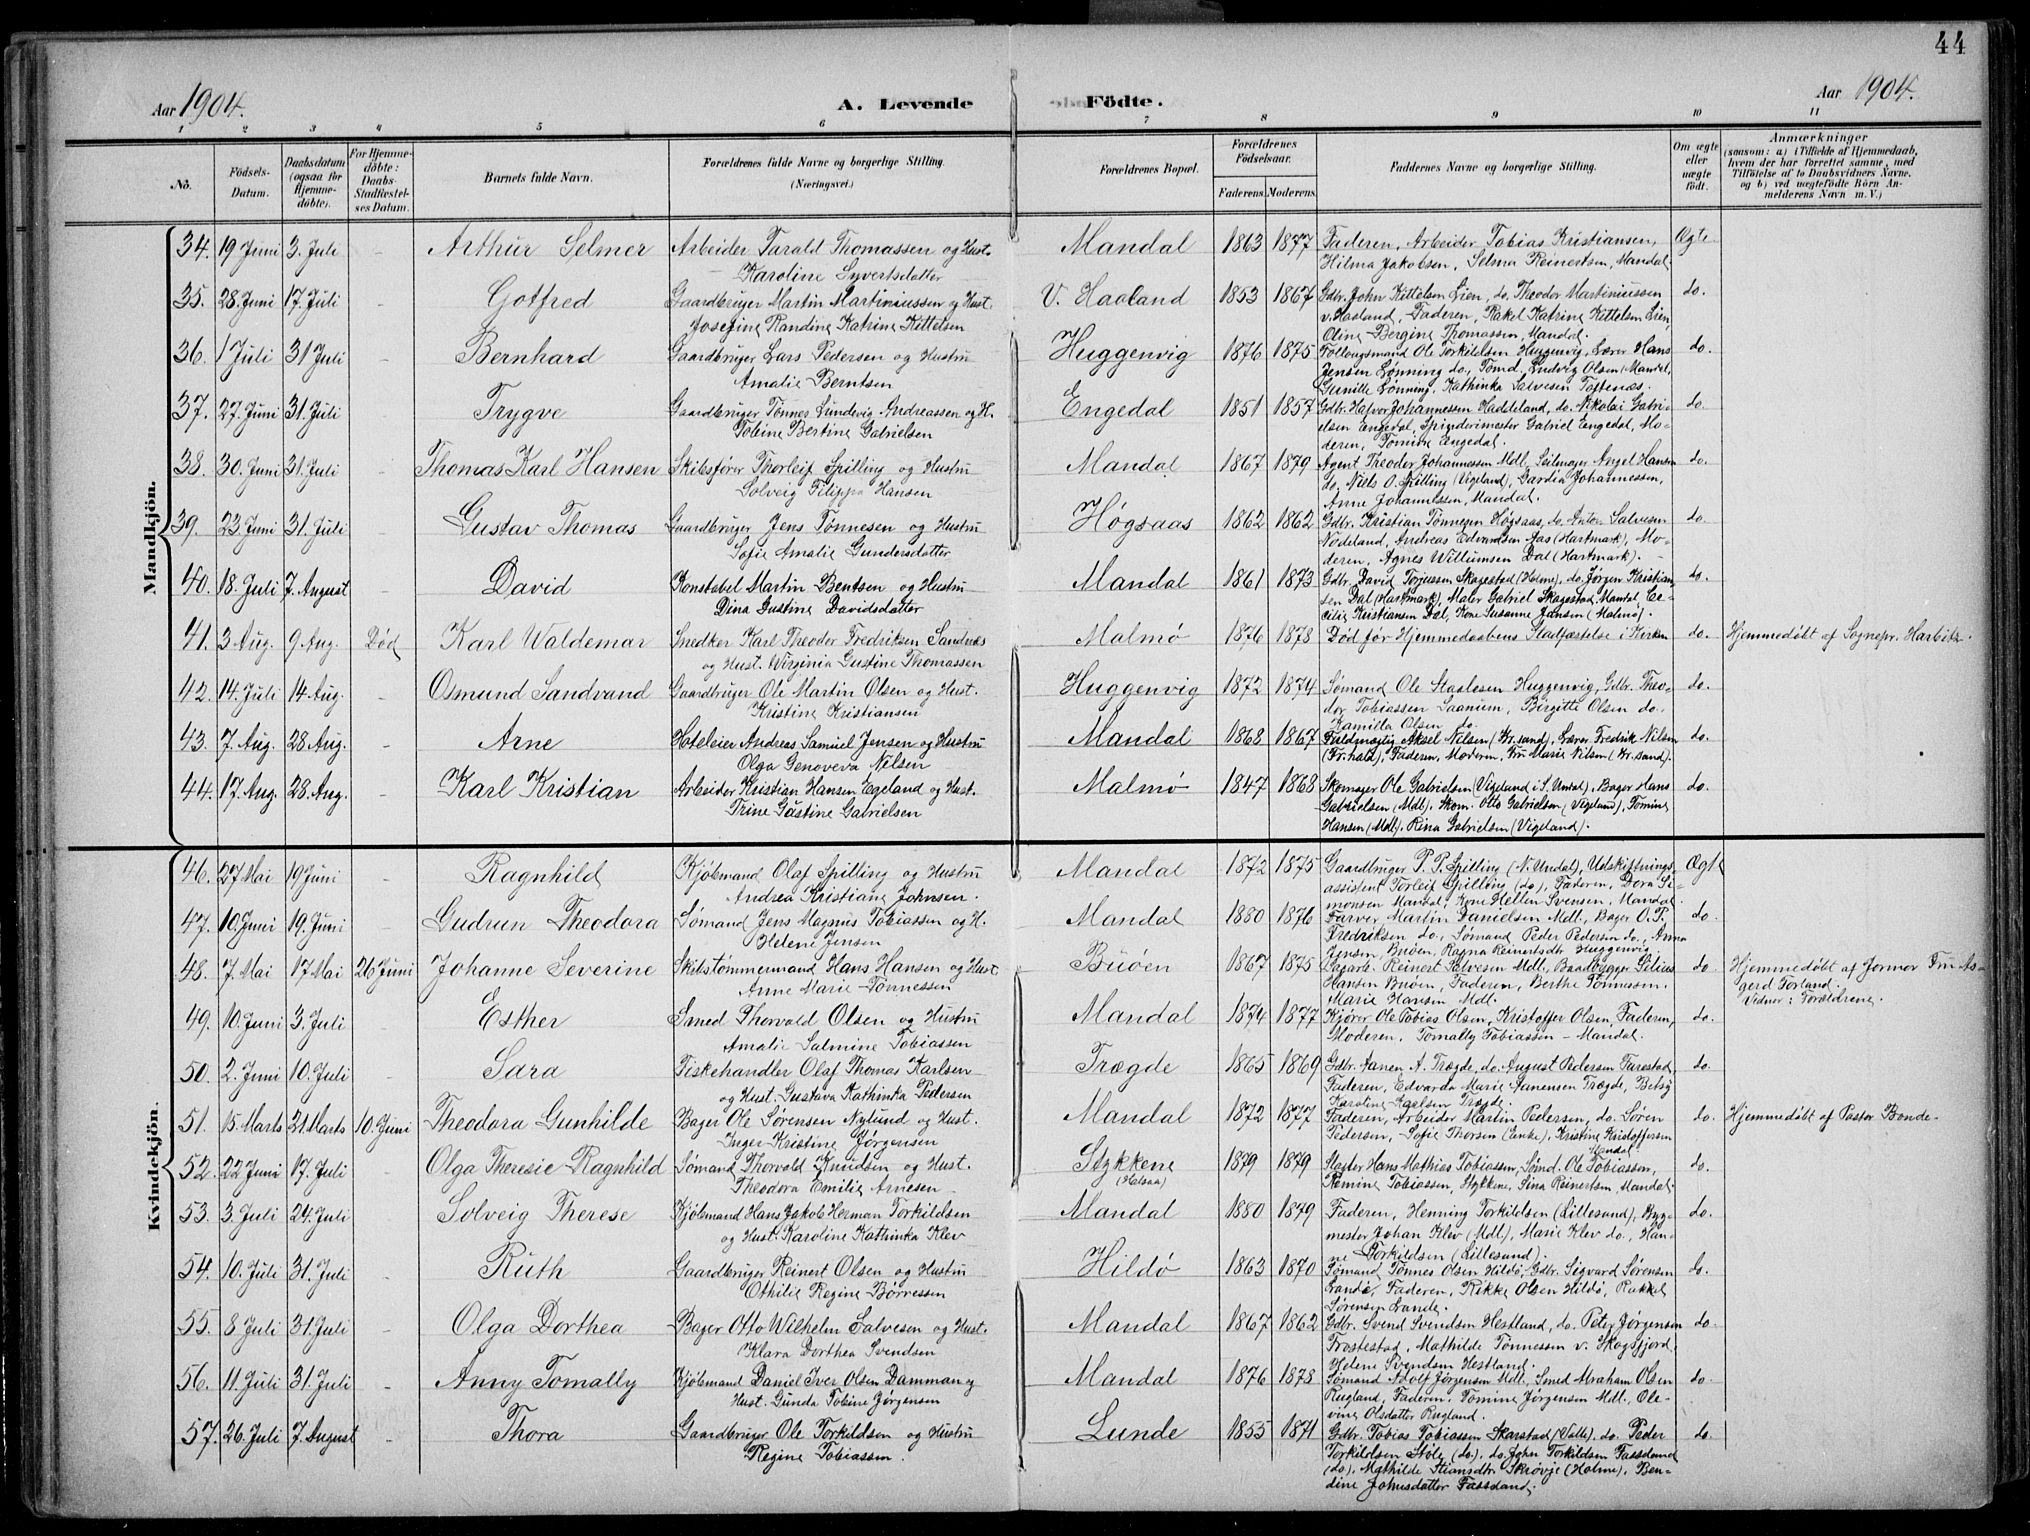 44
Aar 1904.
A. Levende
Födte.
Aar 1904.
1 2 3 4 5 6 7 8 9 10 11
No.
Födsels-
Datum.
Daabsdatum
(ogsaa for
Hjemme-
döbte).
For Hjemme-
döbte:
Daabs-
Stadfæstel-
ses Datum.
Barnets fulde Navn.
Forældrenes fulde Navne og borgerlige Stilling.
(Næringsvei.)
Forældrenes Bopæl.
Forældrenes
Födselsaar.
Faderens. Moderens.
Faddernes Navne og borgerlige Stilling.
Om ægte
eller
uægte
födt.
Anmærkninger
(saasom: a) i Tilfælde af Hjemmedaab,
hvem der har forrettet samme, med
Tilföielse af to Daabsvidners Navne.
og b) ved uægtefödte Börn An-
melderens Navn m. V.)
Mandkjön.
34. 19 Juni 3. Juli - Arthur Selmer Arbeider Tarald Thomassen og Hust. Mandal 1863 1877 Faderen, Arbeider Tobias Kristiansen, Ægte
Karoline Syvertsdatter Hilma Jakobsen, Selma Reinertsen, Mandal
35. 28. Juni 17. Juli - Gotfred Gaardbruger Martin Martiniussen og Hust. V. Haaland 1853 1867 Gdbr. John Kittelsen Lien, do. Theodor Martiniussen do.
Josefine Randine Katrine Kittelsen v. Haaland, Faderen, Rakel Katrine Kittelsen Lien,
Oline Bergine Thomassen, Mandal.
36. 1 Juli 31 Juli - Bernhard Gaardbruger Lars Pedersen og Hustru Huggenvig 1876 1875 Ole Torkildsen Huggenvig, Lærer Hans do.
Amalie Berntsen Jensen Lønning do., Tømd. Ludvig Olsen (Mandal,
Gunille Lønning, Kathinka Salvesen Toftenæs.
37. 27. Juni 31. Juli - Trygve Gaardbruger Tønnes Lundevig Andreassen og H. Engedal 1851 1857 Gdbr. Halvor Johannessen Haddeland, do. Nikolai Gabri- do.
Tobine Bertine Gabrielsen elsen Engedal, Spinderimester Gabriel Engedal, Mo-
deren, Tomine Engedal.
38. 30. Juni 31. Juli - Thomas Karl Hansen Skibsfører Thorleif Spilling og Hustru Mandal 1867 1879 Agent Theodor Johannessen Mdl, Seilmager Angel Hansen do.
Solveig Filippa Hansen do, Niels O. Spilling (Vigeland), Gardia Johannessen,
Anne Johannessen, Mandal.
39. 23. Juni 31. Juli - Gustav Thomas Gaardbruger Jens Tønnesen og Hustru Høgsaas 1862 1862 Gdbr. Kristian Tønnesen Høgsaas, do. Anton Salvesen do.
Sofie Amalie Gundersdatter Nødeland, Andreas Edvardsen Aas (Hartmark), Mo-
deren, Agnes Willumsen Dal (Hartmark).
40. 18. Juli 7. August - David Konstabel Martin Bentsen og Hustru Mandal 1861 1873 Gdbr. David Torjussen Skagestad (Holme), do. Jørgen Kristian- do.
Dina Gustine Davidsdatter sen Dal (Hartmark), Maler Gabriel Skagestad, Mandal, Ce-
cilie Kristiansen Dal, Kone Susanne Jansen (Malmø).
41. 3 Aug. 9 Aug. Død Karl Waldemar Snedker Karl Theodor Fredriksen Sandnæs Malmø 1876 1878 Død før Hjemmedaabens Stadfæstelse i Kirken do. Hjemmedøbt af Sognepr. Harbitz.
og Hust. Virginia Gustine Thomassen
42. 14. Juli 14 Aug. - Osmund Sandvand Gaardbruger Ole Martin Olsen og Hust. Huggenvig 1872 1874 Sømand Ole Staalesen Huggenvig, Gdbr. Theo- do.
Kristine Kristiansen dor Tobiassen Saanum, Birgitte Olsen do.
Kamilla Olsen do.
43. 7. Aug. 28 Aug. - Arne Hoteleier Andreas Samuel Jensen og Hustru Mandal 1868 1867 Fuldmægtig Aksel Nilsen (Kr.sand), Lærer Fredrik Nilsen do.
Olga Genoveva Nilsen (Fr.hald), Faderen, Moderen, Fru Marie Nilsen (Kr.sand).
44. 17 Aug. 28 Aug. - Karl Kristian Arbeider Kristian Hansen Egeland og Hust. Malmø 1847 1868 Skomager Ole Gabrielsen (Vigeland i S. Undal), Bager Hans do.
Trine Gustine Gabrielsen Gabrielsen (Mdl), Skom. Otto Gabrielsen (Vigeland), Tomine
Hansen (Mdl), Rina Gabrielsen (Vigeland).
Kvindekjön.
46. 27 Mai 19 Juni - Ragnhild Kjøbmand Olaf Spilling og Hustru Mandal 1872 1875 Gaardbruger P. P. Spilling (N. Undal), Udskiftnings- Ægte
Andrea Kristiane Johnsen. assistent Torleif Spilling (do), Faderen, Dora Si-
monsen Mandal, Kone Hellen Svensen, Mandal.
47. 10. Juni 19. Juni - Gudrun Theodora Sømand Jens Magnus Tobiassen og H. Mandal 1880 1876 Farver Martin Danielsen Mdl., Bager O. T. do.
Helene Jensen Fredriksen do, Sømand Peder Pedersen do, Anna
Jensen, Buøen, Ragna Reinertsdtr. Huggenvig
48. 7 Mai 17 Mai 26 Juni Johanne Severine Skibstømmermand Hans Hansen og Hust. Buøen 1867 1875 Reinert Salvesen Mdl., Baadbygger Silius do. Hjemmedøbt af Jormor Fru As-
Anne Marie Tønnessen Hansen Buøen, Faderen, Berthe Tønnessen, gerd Torland.
Marie Hansen Mdl. Vidner: Forældrene.
49. 10. Juni 3. Juli - Esther Smed Thorvald Olsen og Hustru Mandal 1874 1877 Kjører Ole Tobias Olsen, Kristoffer Olsen, Faderen, do.
Amalie Salmine Tobiassen Moderen, Tomally Tobiassen - Mandal.
50. 2. Juni 10. Juli - Sara Fiskehandler Olaf Thomas Karlsen Trægde 1865 1869 Gdbr. Aanen A. Trægde, do. August Pedersen Furestad, do.
og Hust. Gustava Kathinka Pedersen Faderen, Edvarda Marie Aanensen Trægde, Betsy
Karoline Trægde.
51. 15. Marts 21. Marts 10. Juni Theodora Gunhilde Bager Ole Sørensen Nylund og Hust. Mandal 1872 1877 Faderen, Arbeider Martin Pedersen, do. Søren do. Hjemmedøbt af Pastor Bonde-
Inger Kristine Jørgensen Pedersen, Sofie Thorsen (Enke), Kristine Kristoffersen
Mandal.
52. 22 Juni 17. Juli - Olga Theresie Ragnhild Sømand Thorvald Knudsen og Hust. Støkkene 1879 1879 Slagter Hans Mathias Tobiassen, Sømd. Ole Tobiassen, do.
Theodora Emilie Arnesen (Halsaa) Remine Tobiassen, Støkkene, Sina Reinertsen, Mandal.
53. 3. Juli 24. Juli - Solveig Therese Kjøbmand Hans Jakob Herman Torkildsen Mandal 1880 1879 Faderen, Henning Torkildsen (Lillesand), Byg- do.
og Hust. Karoline Kathinka Klev mester Johan Klev (Mdl), Marie Klev do., Han-
ne Torkildsen (Lillesand).
54. 10. Juli 31. Juli - Ruth Gaardbruger Reinert Olsen og Hustru Hildø 1863 1870 Sømand Tønnes Olsen Hildø, Gdbr. Sigvard Sørensen do.
Othilie Regine Børressen Lande, Faderen, Rikke Olsen Hildø, Rakkel
Sørensen Lande.
55. 8 Juli 31. Juli - Olga Dorthea Bager Otto Wilhelm Salvesen og Hust. Mandal 1867 1862 Gdbr. Svend Svendsen Hestland, do. Peter Jørgensen do.
Klara Dorthea Svendsen Frostestad, Mathilde Tønnessen v. Skogsfjord,
Helene Svendsen Hestland.
56. 11. Juli 31. Juli - Anny Tomally Kjøbmand Daniel Iver Olsen Damman og Mandal 1876 1878 Sømand Adolf Jørgensen Mdl, Smed Abraham Olsen do.
Hust. Gunda Tobine Jørgensen Rugland, Faderen, Tomine Jørgensen Mdl., Ole-
vine Olsdatter Rugland.
57. 26. Juli 7. August - Thora Gaardbruger Ole Torkildsen og Hustru Lunde 1855 1871 Gdbr. Tobias Tobiassen Skarstad (Valle), do. Peder do.
Regine Tobiassen. Torkildsen Støle (do), do. John Torkildsen Fasseland
(do), Mathilde Stiansdtr. Skrøvje (Holme), Ben-
dine Johnsdatter Fassdand.